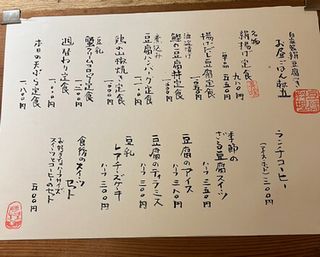 お昼ごはん献立
名物
絹揚げ定食 九八〇円
単品 五五〇円
揚げだし豆腐定食
一、〇〇〇円
鯵の豆腐丼定食
一、〇〇〇円
煮込み
豆腐ハンバーグ定食
一、一〇〇円
鶏の山椒焼き定食
一、〇〇〇円
豆乳
蟹クリームコロッケ定食
一、一〇〇円
週替わり定食
一、〇〇〇円
本日の天ぷら定食
一、一八〇円
ランチコーヒー
(アイス・ホット) 三〇〇円
季節の
ざる豆腐スイーツ
ハーフ 三五〇円
豆腐のアイス
ハーフ 三〇〇円
豆腐のティラミス
ハーフ 三〇〇円
豆乳
レアチーズケーキ
ハーフ 三〇〇円
食後のスイーツ
セット
お好きなハーフサイズ
スイーツとコーヒーのセット
五〇〇円